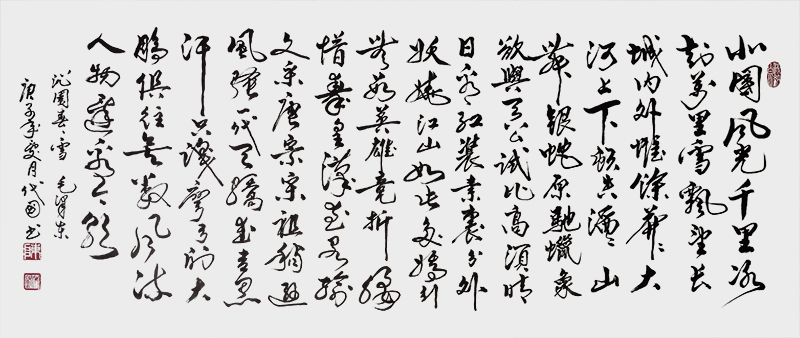 北國風光千里冰
封萬里雪飄望長
城内外惟餘莽〻大
河上下頓失滔〻山
舞銀蛇原馳蠟象
欲與天公試比高須晴
日看紅裝素裹分外
妖嬈江山如此多嬌引
無數英雄競折腰
惜秦皇漢武略輸
文采唐宗宋祖稍遜
風騷一代天驕成吉思
汗只識彎弓射大
鵰俱往矣數風流
人物還看今朝
沁園春雪 毛澤東
庚子年夏月代国书